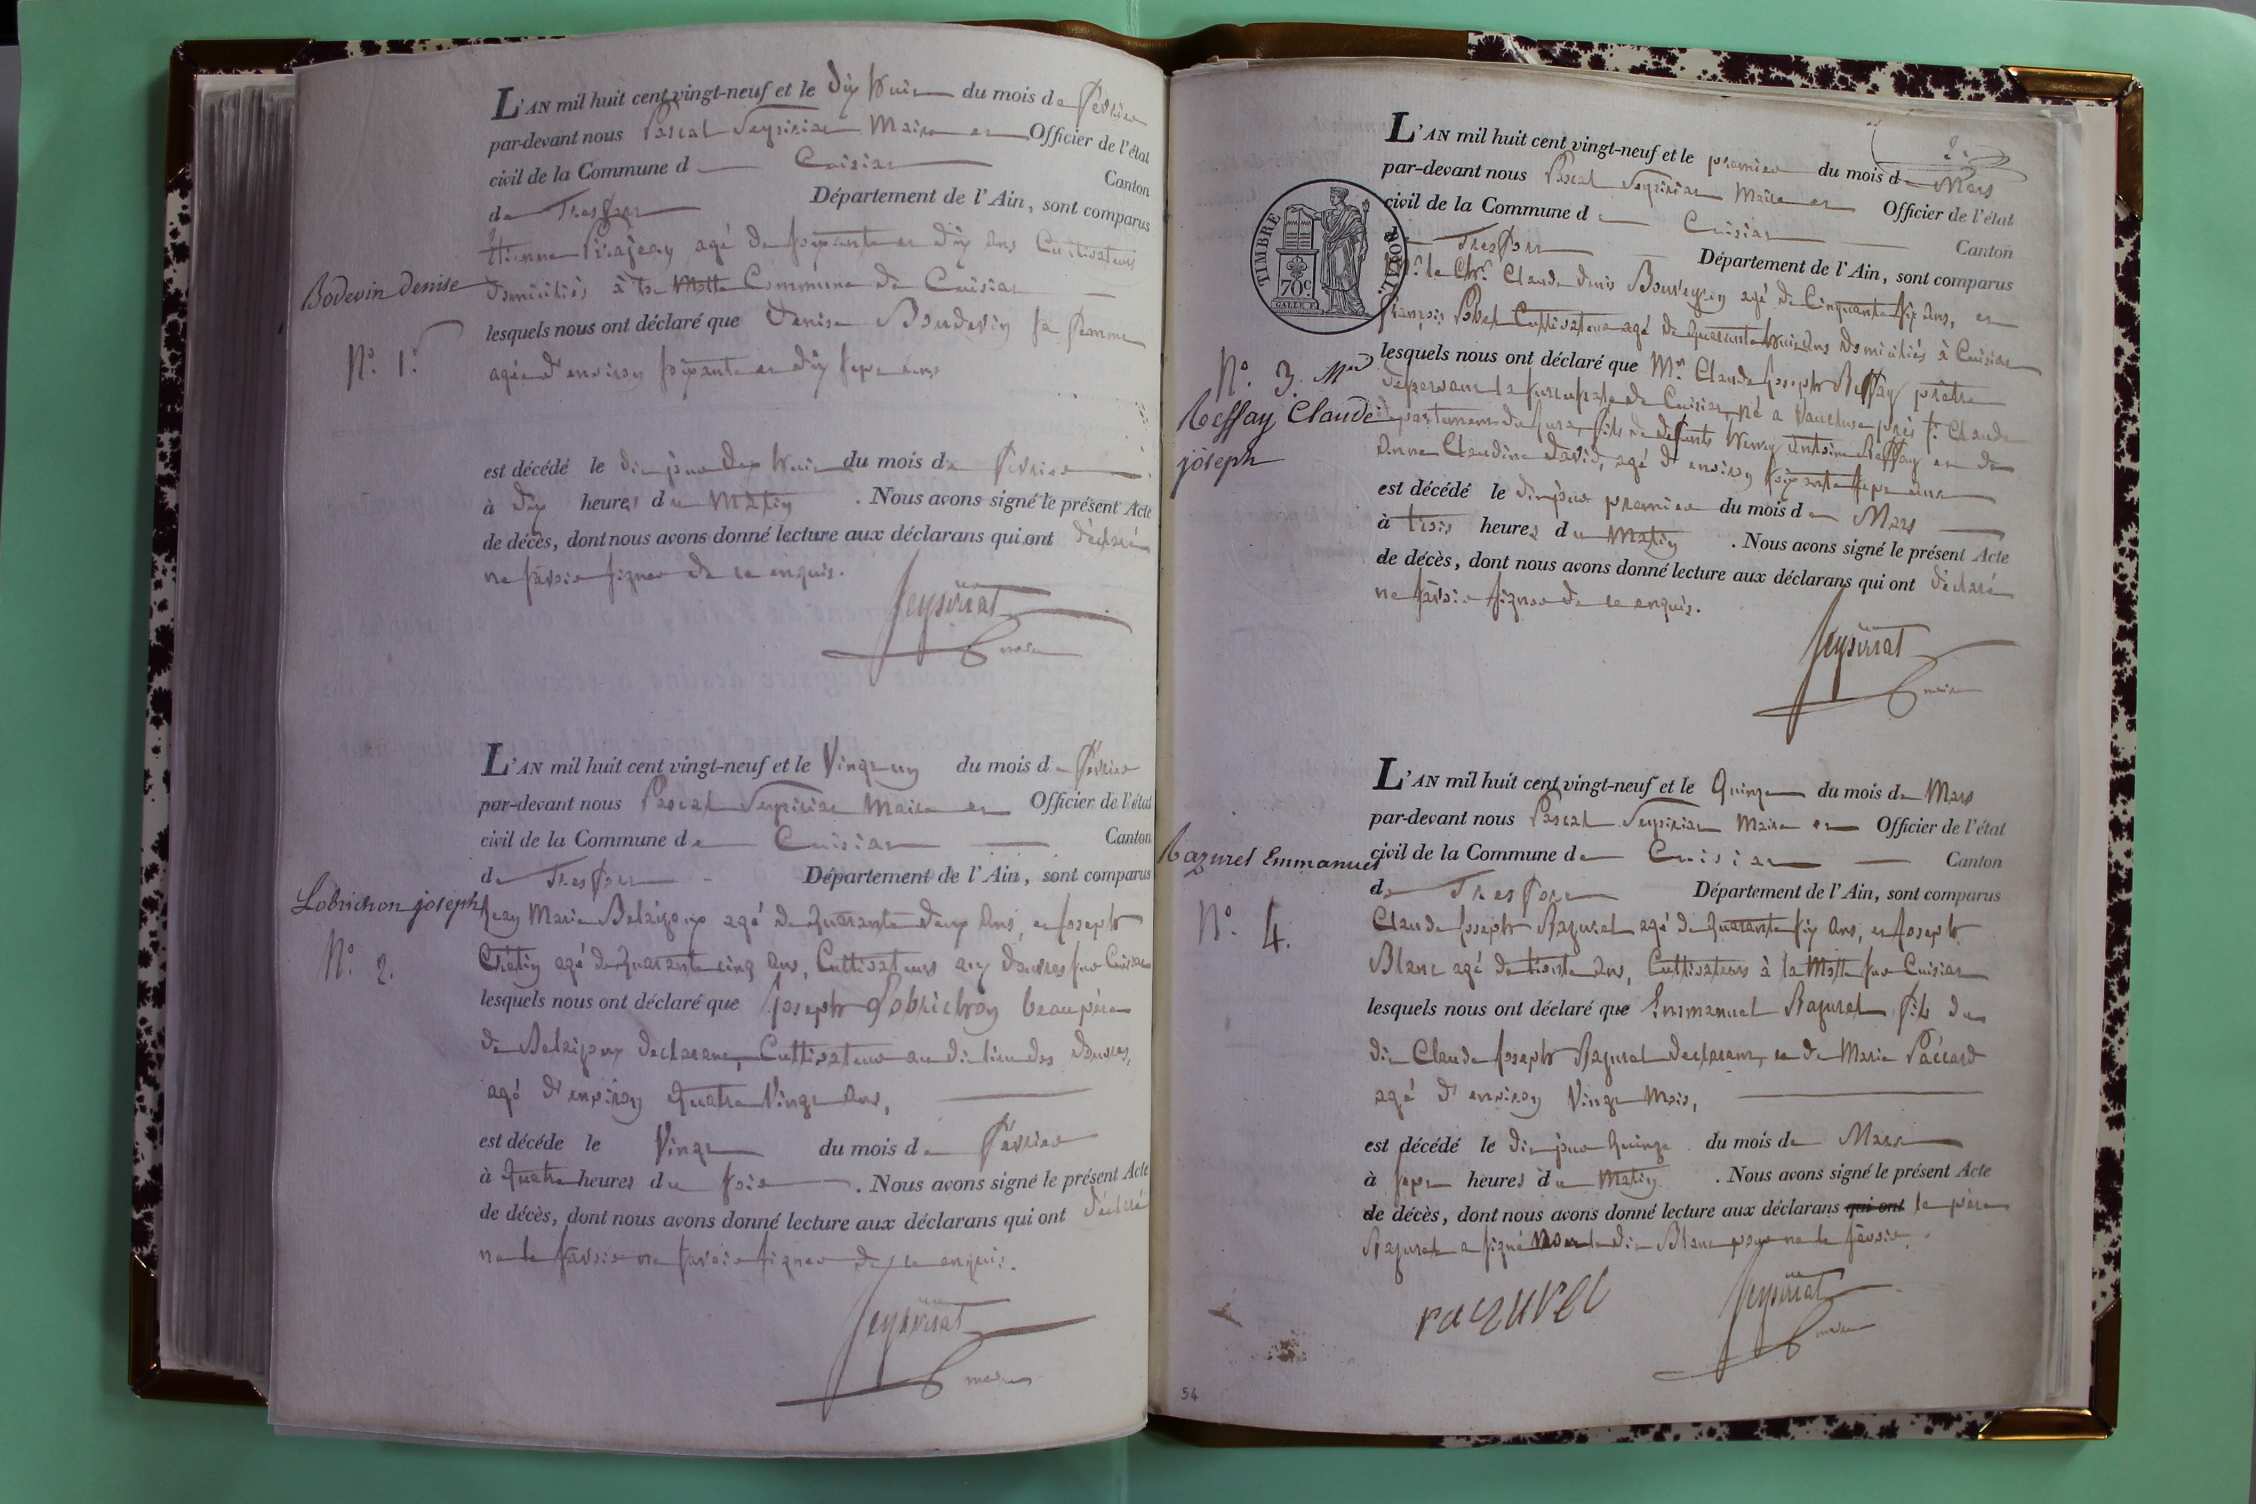 L'AN mil huit cent vingt-neuf et le Dix huit du mois de février
par-devant nous Pascal Seyssirat Maire et Officier de l'état
civil de la Commune d Cuisiat Canton
de Tresfort Département de l'Ain, sont comparus
Etienne agé de soixante et dix ans Cultivateurs
Bodevin Denise
domiciliés à la Motte Commune de Cuisiat
lesquels nous ont déclaré que Denise Boudevin sa femme
N.° 1.er
agée d'environ soixante et dix sept ans
est décédé le dix huit du mois de février
à dix heures du Matin. Nous avons signé le présent Acte
de décès, dont nous avons donné lecture aux déclarans qui ont déclaré
ne savoir signer de ce enquis.
Seyssirat
maire
L'AN mil huit cent vingt-neuf et le Vingt un du mois de février
par-devant nous Pascal Seyssirat Maire et Officier de l'état
civil de la Commune de Cuisiat Canton
de Tresfort Département de l'Ain, sont comparus
Lobrichon joseph
Jean Marie agé de quarante deux ans, et Joseph
Chatin agé de quarante cinq ans, Cultivateurs aux Douvres sur Cuisiat
N.° 2.
lesquels nous ont déclaré que Joseph Lobrichon beau père
de declarant, Cultivateur au dit lieu des Douvres,
agé d'environ quatre Vingt ans,
est décéde le Vingt du mois de février
à quatre heures du soir. Nous avons signé le présent Acte
de décès, dont nous avons donné lecture aux déclarans qui ont déclaré
ne le savoir ne savoir signer de ce enquis.
Seyssirat
maire
2.e
L'AN mil huit cent vingt-neuf et le premier du mois de Mars
par-devant nous Pascal Seyssirat Maire et Officier de l'état
civil de la Commune d Cuisiat Canton
TIMBRE ROYAL.
70c
GALLE F.
Tresfort Département de l'Ain, sont comparus
Claude Denis Bouveyron agé de Cinquante six ans, et
françois Cultivateur agé de quarante huit ans domiciliés à Cuisiat
N.° 3. Mr
lesquels nous ont déclaré que Mr. Claude Joseph Reffay prêtre
desservant la succursale de Cuisiat, né a Vaucluse près St. Claude
Reffay Claude
joseph
departement du Jura, fils de défunts Henry Antoine Reffay et de
Anne Claudine David, agé d'environ soixante sept ans
est décédé le dit jour premier du mois de Mars
à trois heures du Matin. Nous avons signé le présent Acte
de décès, dont nous avons donné lecture aux déclarans qui ont déclaré
ne savoir signer de ce enquis.
Seyssirat
maire
L'AN mil huit cent vingt-neuf et le Quinze du mois de Mars
par-devant nous Pascal Seyssirat Maire et Officier de l'état
Razurel Emmanuel
civil de la Commune de Cuisiat Canton
de Tresfort Département de l'Ain, sont comparus
Claude Joseph Razurel agé de quarante six ans, et Joseph
N.° 4.
Blanc agé de trente ans, Cultivateurs à la Motte sur Cuisiat
lesquels nous ont déclaré que Emmanuel Razurel fils du
dit Claude Joseph Razurel declarant, et de Marie Paccard
agé d'environ Vingt Mois,
est décédé le dit jour quinze du mois de Mars
à sept heures du Matin. Nous avons signé le présent Acte
de décès, dont nous avons donné lecture aux déclarans qui ont le père
Razurel a signé non le dit Blanc pour ne le savoir.
razurel
Seyssirat
maire
54